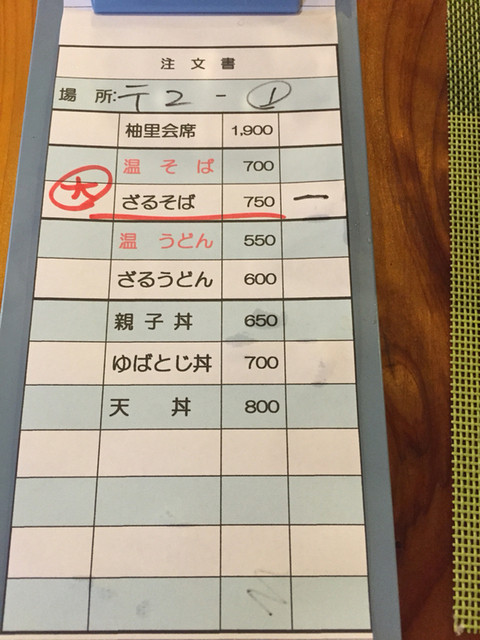 注文書
場所: テ2 - ①
柚里会席 1,900
温そば 700
大 ざるそば 750 一
温うどん 550
ざるうどん 600
親子丼 650
ゆばとじ丼 700
天丼 800